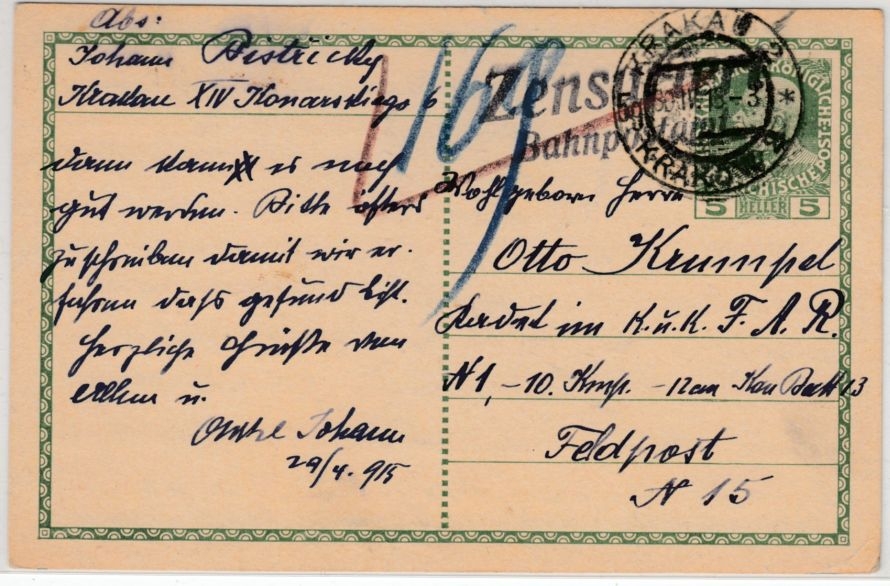 Abs:
Johann Bistřicky
Krakau XIV Konarskiego 6
dann kann es noch
gut werden. Bitte öfters
zu schreiben damit wir er-
fahren daſs gesund bist.
Herzliche Grüße von
allen u.
Onkel Johann
29/4. 915
169
Zensuriert
Bahnpostamt
KRAKAU 2
KRAKÓW 2
5 HELLER 5
Wohlgeboren Herrn
Otto Krumpel
Kadet im K.u.K. F. A. R.
N 1, - 10. Kmp.
Feldpost
N 15